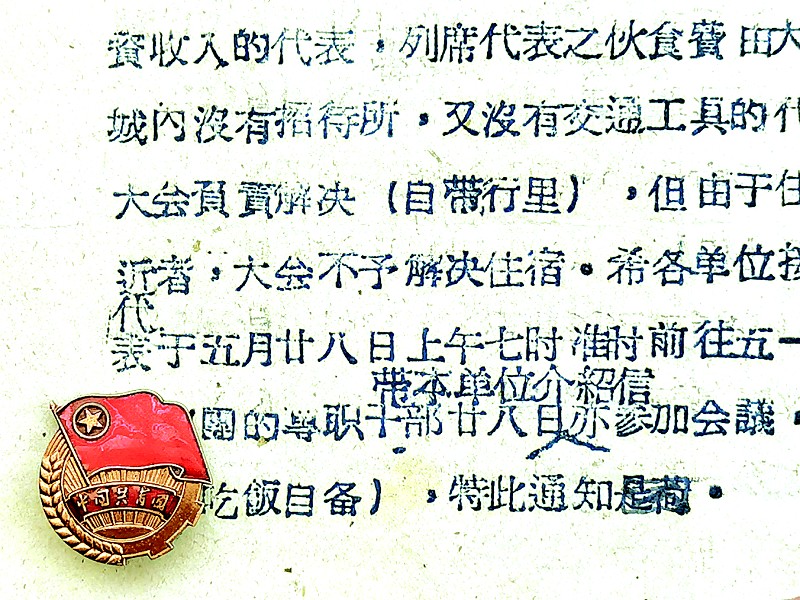 資收入的代表，列席代表之伙食費由大
城內沒有招待所，又沒有交通工具的代
大会負責解决（自带行里），但由于住
近者，大会不予解决住宿。希各单位接
代
表于五月廿八日上午七时准时前往五一
带本单位介紹信
團的专职干部廿八日亦参加会議，
吃飯自备），特此通知是荷。
中国共青团